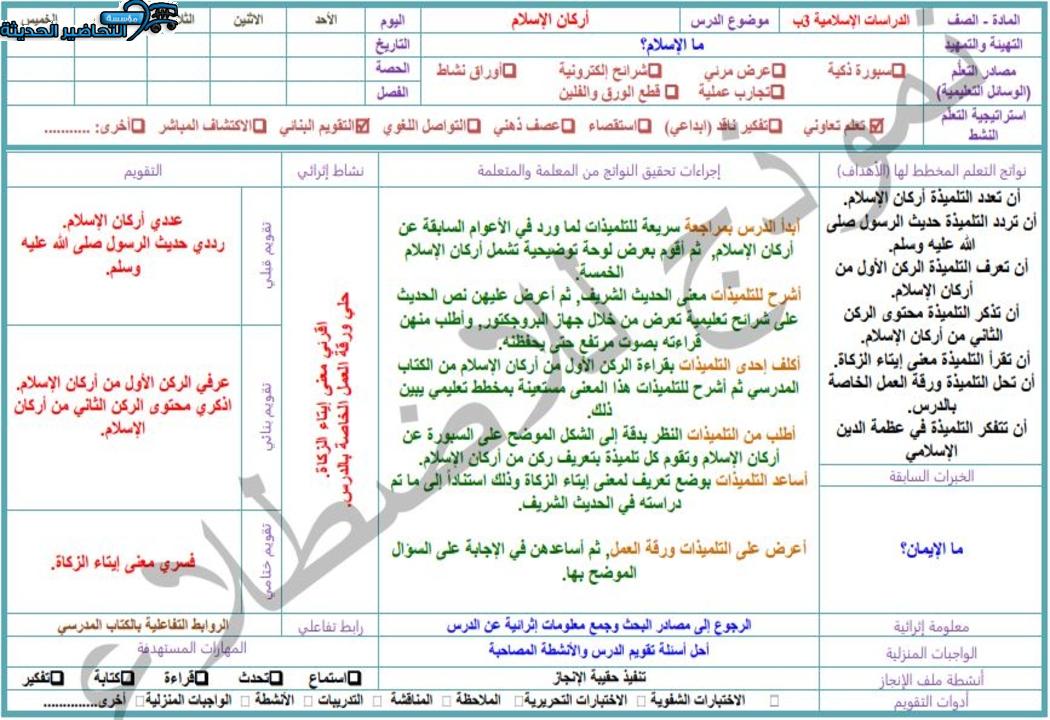 المادة - الصف
الدراسات الإسلامية 3ب
موضوع الدرس
أركان الإسلام
اليوم
الأحد
الاثنين
الخميس
مؤسسة
التحاضير الحديثة
التهيئة والتمهيد
ما الإسلام؟
التاريخ
مصادر التعلم
(الوسائل التعليمية)
☐سبورة ذكية
☐عرض مرئي
☐شرائح إلكترونية
☐أوراق نشاط
☐تجارب عملية
☐ قطع الورق والفلين
الحصة
الفصل
استراتيجية التعلم
النشط
☑ تعلم تعاوني
☐تفكير ناقد (ابداعي)
☐استقصاء
☐عصف ذهني
☐التواصل اللغوي
☑التقويم البنائي
☐الاكتشاف المباشر
☐أخرى: ...........
نواتج التعلم المخطط لها (الأهداف)
إجراءات تحقيق النواتج من المعلمة والمتعلمة
نشاط إثرائي
التقويم
أن تعدد التلميذة أركان الإسلام.
أن تردد التلميذة حديث الرسول صلى
الله عليه وسلم.
أن تعرف التلميذة الركن الأول من
أركان الإسلام.
أن تذكر التلميذة محتوى الركن
الثاني من أركان الإسلام.
أن تقرأ التلميذة معنى إيتاء الزكاة.
أن تحل التلميذة ورقة العمل الخاصة
بالدرس.
أن تتفكر التلميذة في عظمة الدين
الإسلامي
الخبرات السابقة
ما الإيمان؟
أبدأ الدرس بمراجعة سريعة للتلميذات لما ورد في الأعوام السابقة عن
أركان الإسلام, ثم أقوم بعرض لوحة توضيحية تشمل أركان الإسلام
الخمسة.
أشرح للتلميذات معنى الحديث الشريف, ثم أعرض عليهن نص الحديث
على شرائح تعليمية تعرض من خلال جهاز البروجكتور, وأطلب منهن
قراءته بصوت مرتفع حتى يحفظنه.
أكلف إحدى التلميذات بقراءة الركن الأول من أركان الإسلام من الكتاب
المدرسي ثم أشرح للتلميذات هذا المعنى مستعينة بمخطط تعليمي يبين
ذلك.
أطلب من التلميذات النظر بدقة إلى الشكل الموضح على السبورة عن
أركان الإسلام وتقوم كل تلميذة بتعريف ركن من أركان الإسلام.
أساعد التلميذات بوضع تعريف لمعنى إيتاء الزكاة وذلك استناداً إلى ما تم
دراسته في الحديث الشريف.
أعرض على التلميذات ورقة العمل, ثم أساعدهن في الإجابة على السؤال
الموضح بها.
حلي ورقة العمل الخاصة بالدرس.
اقرئي معنى إيتاء الزكاة.
تقويم قبلي
عددي أركان الإسلام.
رددي حديث الرسول صلى الله عليه
وسلم.
تقويم بنائي
عرفي الركن الأول من أركان الإسلام.
اذكري محتوى الركن الثاني من أركان
الإسلام.
تقويم ختامي
فسري معنى إيتاء الزكاة.
معلومة إثرائية
الرجوع إلى مصادر البحث وجمع معلومات إثرائية عن الدرس
رابط تفاعلي
الروابط التفاعلية بالكتاب المدرسي
الواجبات المنزلية
أحل أسئلة تقويم الدرس والأنشطة المصاحبة
المهارات المستهدفة
أنشطة ملف الإنجاز
تنفيذ حقيبة الإنجاز
☐استماع
☐تحدث
☐قراءة
☐كتابة
☐تفكير
أدوات التقويم
☐ الاختبارات الشفوية ☐ الاختبارات التحريرية ☐ الملاحظة ☐ المناقشة ☐ التدريبات ☐ الأنشطة ☐ الواجبات المنزلية ☐ أخرى..............
نموذج للاضطلاع